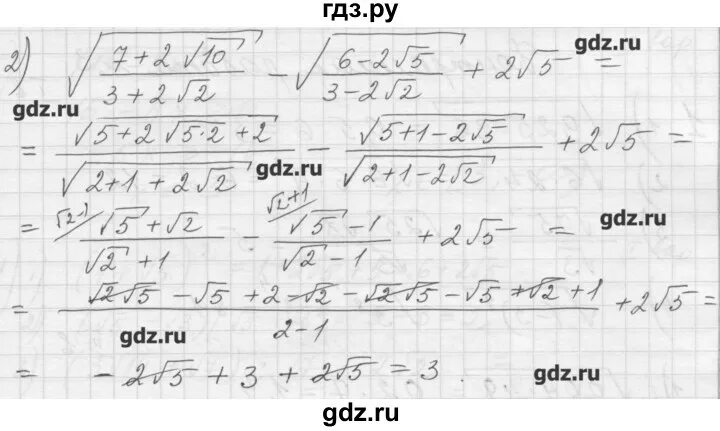 гдз.ру
2) √((7+2√10)/(3+2√2)) - √((6-2√5)/(3-2√2)) + 2√5 =
gdz.ru
gdz.ru
= √(5+2√(5·2)+2)/√(2+1+2√2) - √(5+1-2√5)/√(2+1-2√2) + 2√5 =
gdz.ru
= √2-1/ (√5+√2)/(√2+1) - √2+1/ (√5-1)/(√2-1) + 2√5 =
gdz.ru
= (√2√5 - √5 + 2 - √2 - √2√5 - √5 + √2 + 1)/(2-1) + 2√5 =
gdz.ru
= - 2√5 + 3 + 2√5 = 3.
gdz.ru
gdz.ru